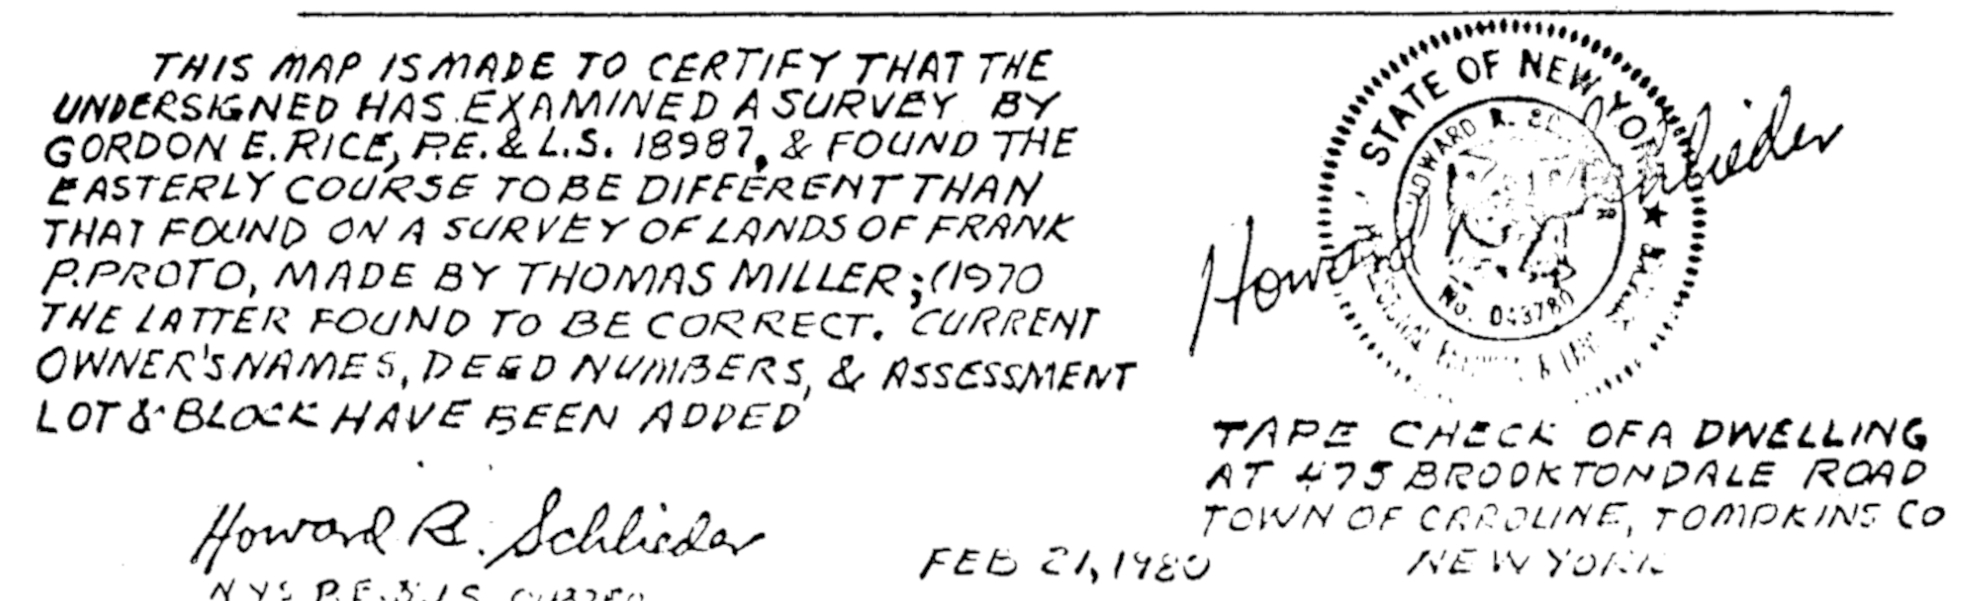 THIS MAP IS MADE TO CERTIFY THAT THE
UNDERSIGNED HAS EXAMINED A SURVEY BY
GORDON E. RICE, P.E. & L.S. 18987, & FOUND THE
EASTERLY COURSE TO BE DIFFERENT THAN
THAT FOUND ON A SURVEY OF LANDS OF FRANK
P. PROTO, MADE BY THOMAS MILLER; (1970
THE LATTER FOUND TO BE CORRECT. CURRENT
OWNER'S NAMES, DEED NUMBERS, & ASSESSMENT
LOT & BLOCK HAVE BEEN ADDED
Howard R. Schlieder
NYS P.E. & L.S.
FEB 21, 1980
STATE OF NEW YORK
HOWARD R.
No. 043780
Howard Schlieder
TAPE CHECK OF A DWELLING
AT 475 BROOKTONDALE ROAD
TOWN OF CAROLINE, TOMPKINS CO
NEW YORK